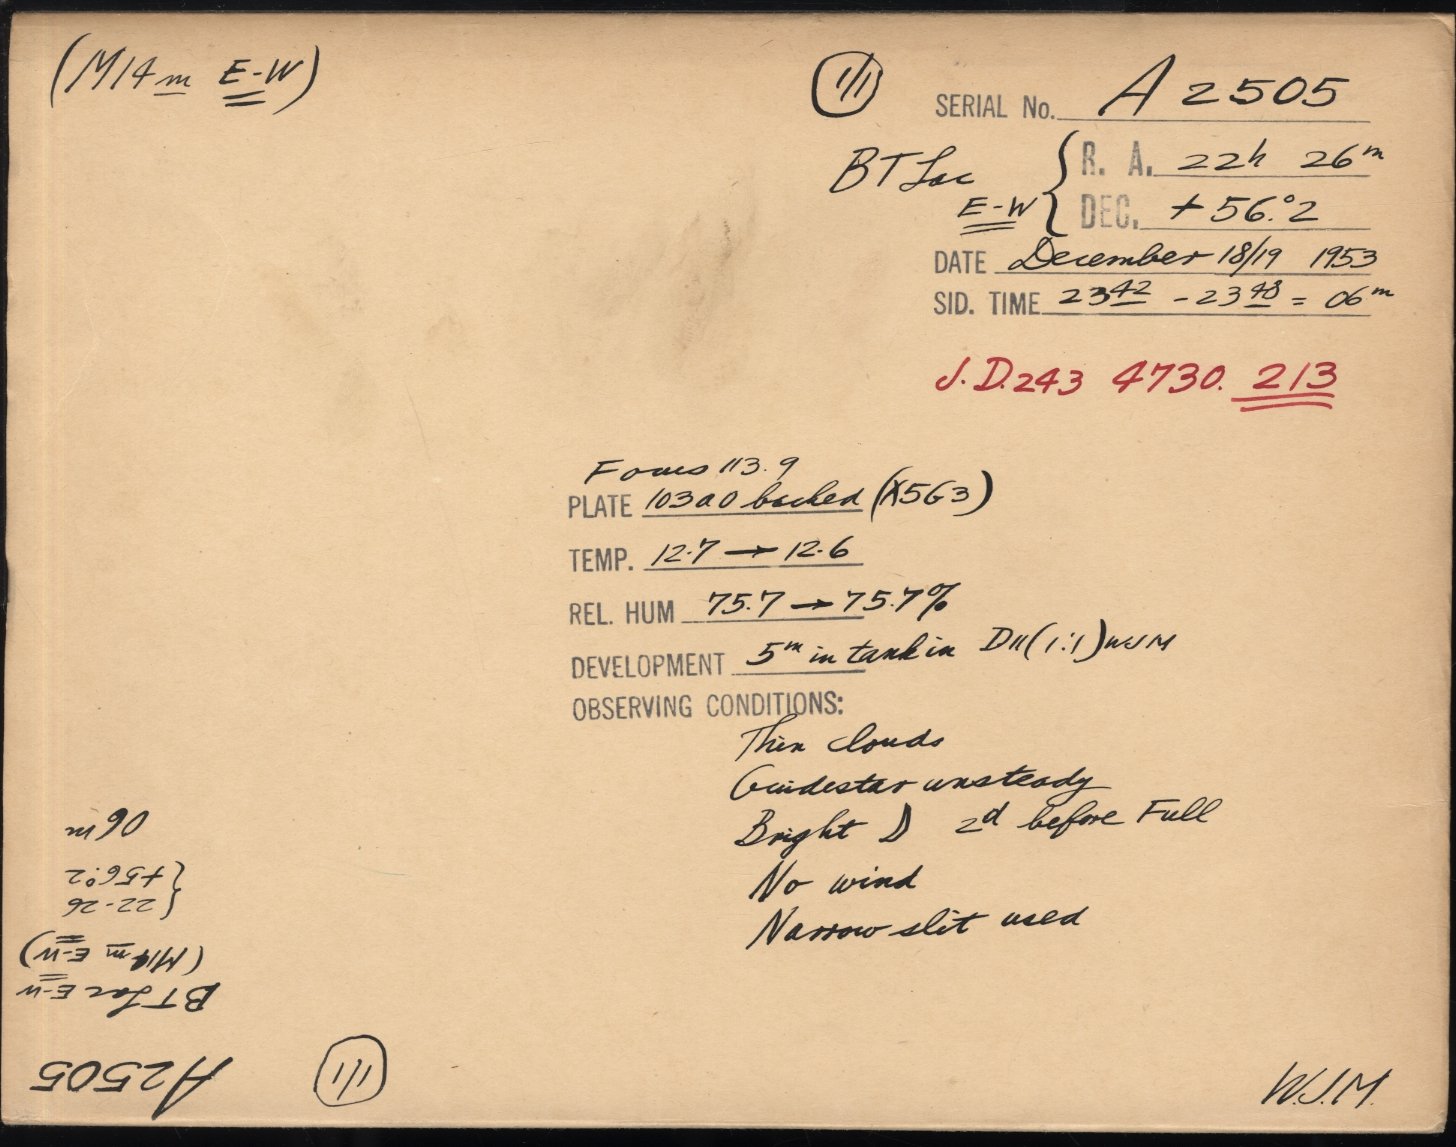 (M14m E-W)
1/1
SERIAL No. A 2505
BT Lac E-W { R. A. 22h 26m
DEC. +56.°2
DATE December 18/19 1953
SID. TIME 23 42 - 23 48 = 06m
J.D. 243 4730.213
Focus 113.9
PLATE 103a0 backed (X5G3)
TEMP. 12.7 → 12.6
REL. HUM 75.7 → 75.7%
DEVELOPMENT 5m in tank in D11 (1:1) WJM
OBSERVING CONDITIONS:
Thin clouds
Guidestar unsteady
Bright D 2d before Full
No wind
Narrow slit used
W.J.M.
A2505
1/1
BT Lac E-W
(M14m E-W)
{ 22-26
+56°.2
06m